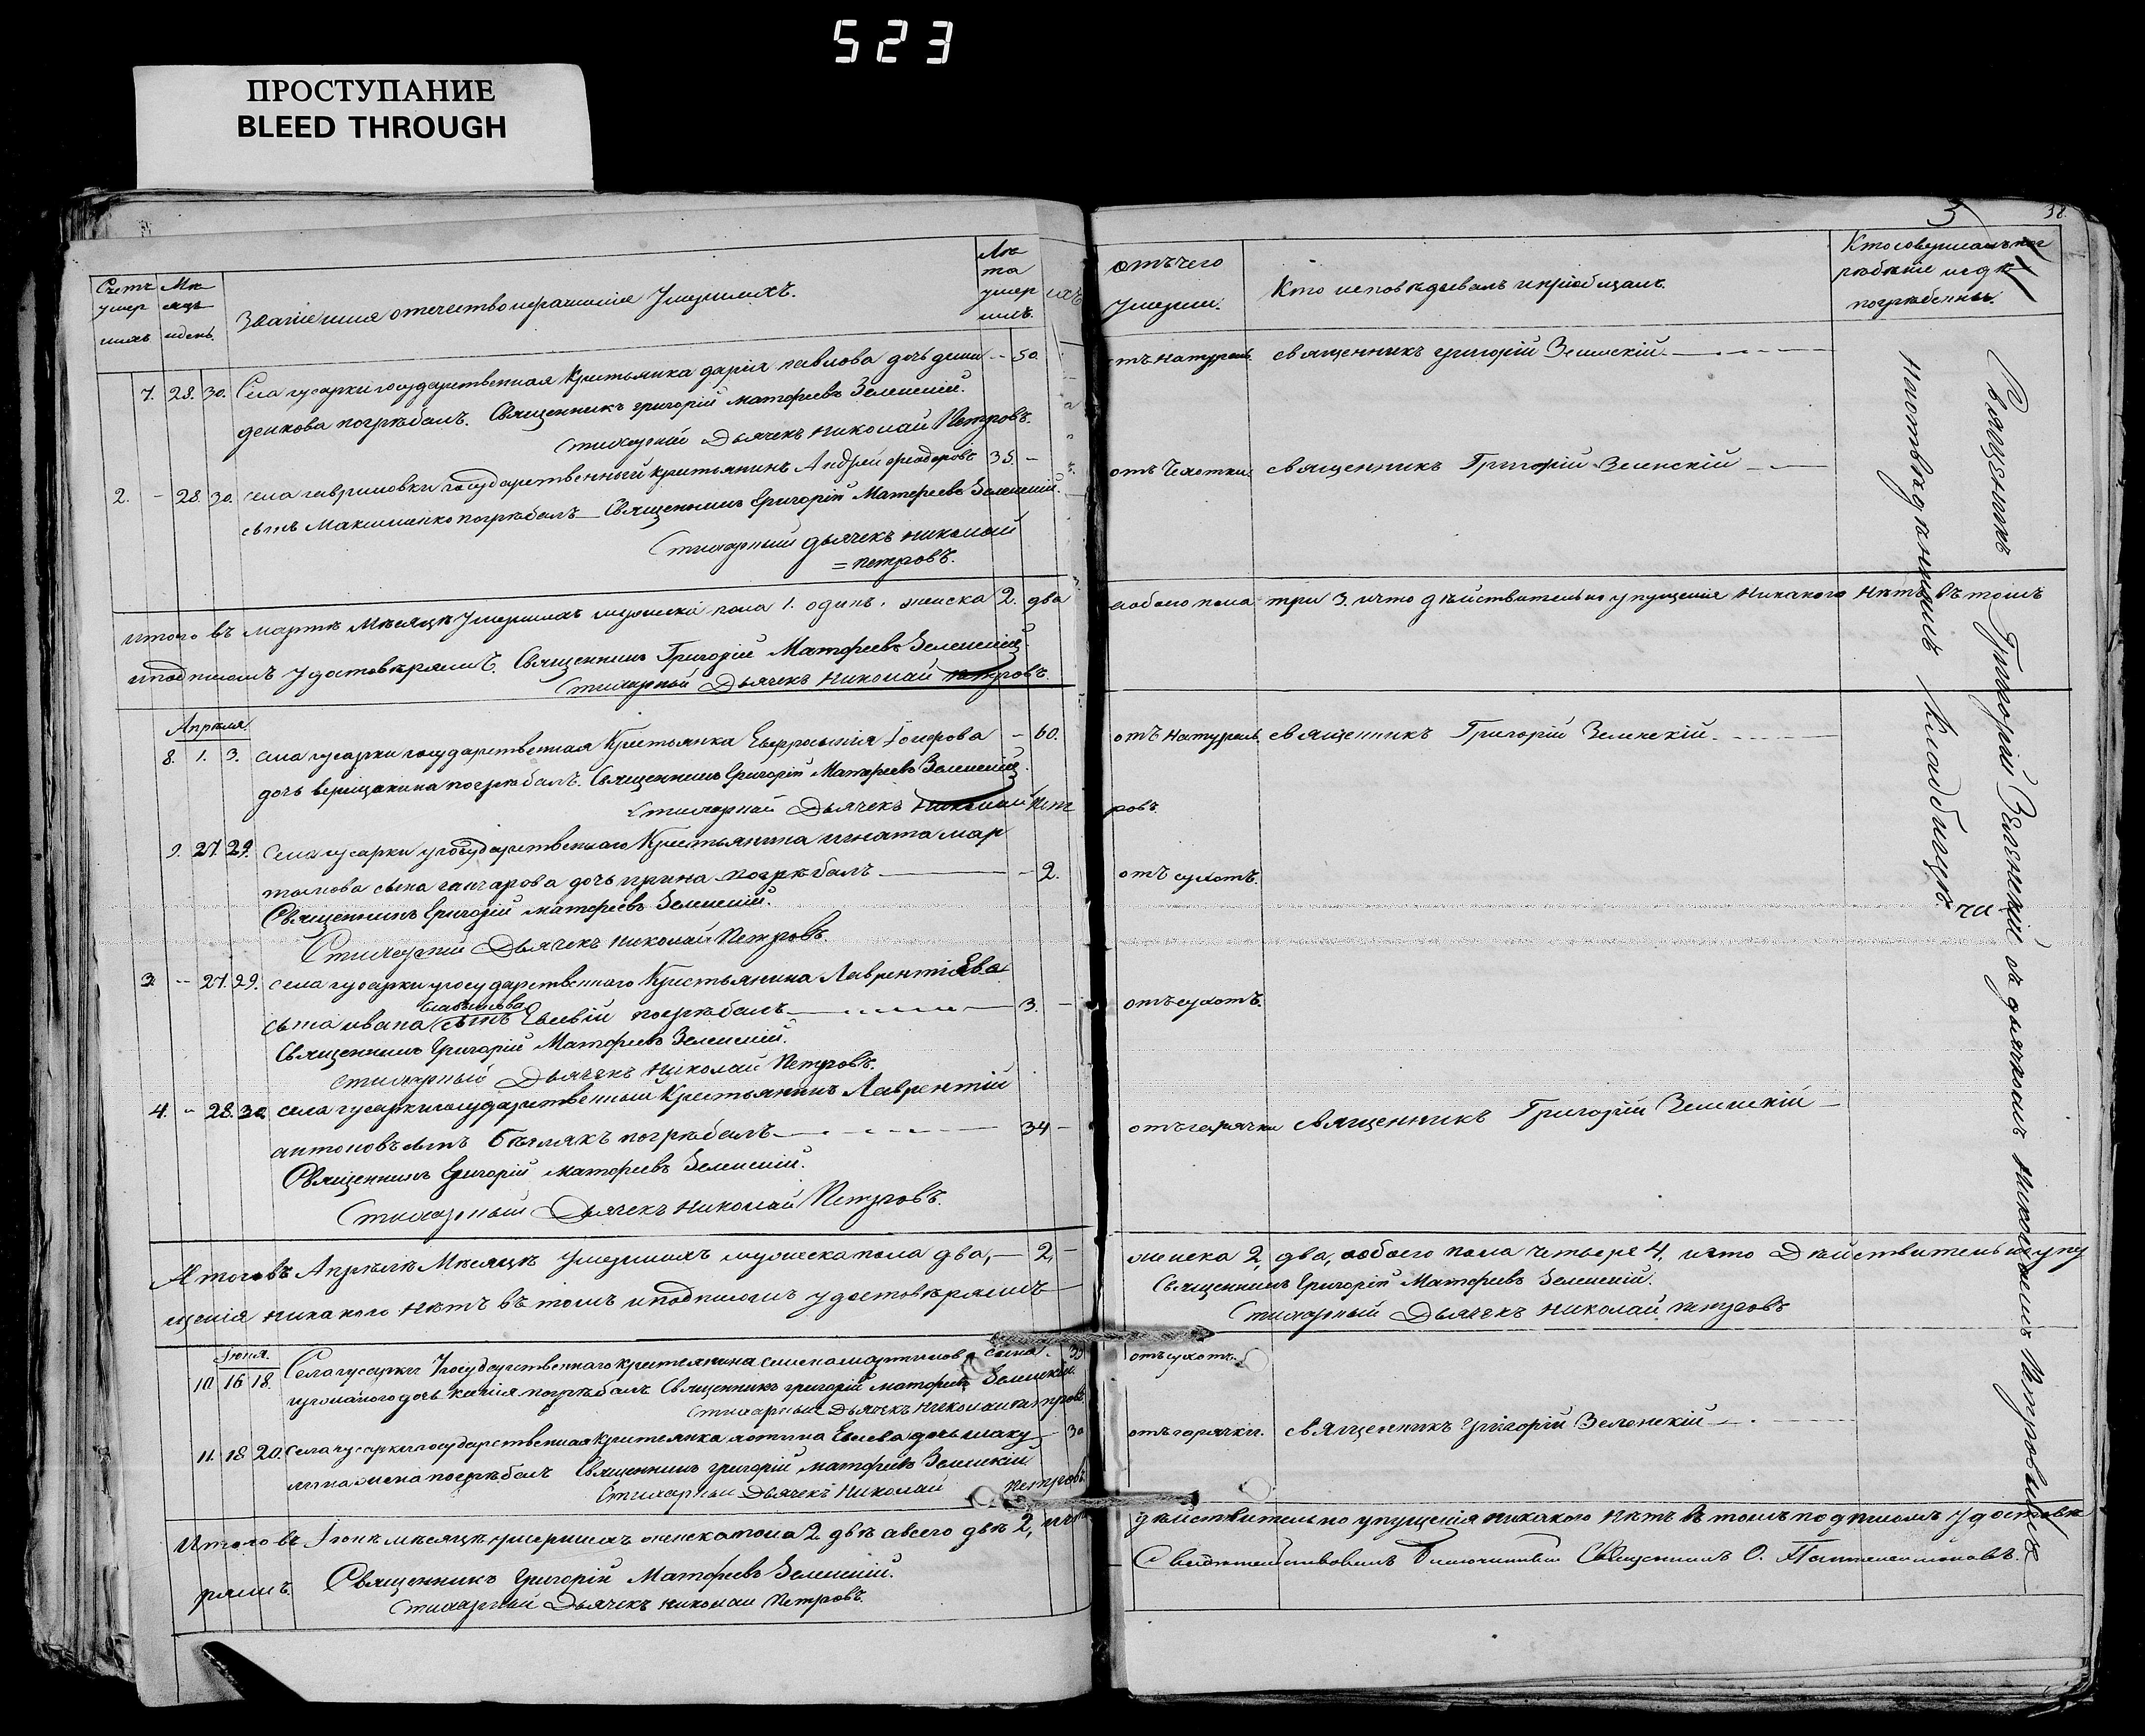 523
ПРОСТУПАНИЕ
BLEED THROUGH
Счетъ умер шихъ
Мѣ сяцъ и день.
Званіе имя отечество и фамилія Умершихъ.
Лѣ та умер шихъ.
отъ чего Умерли.
Кто исповѣдывалъ и пріобщалъ.
Кто совершалъ пог рѣбѣніе и гдѣ погрѣбенны.
38.
7. 28. 30. Села гусарки государственная Крестьянка дарія павлова дочь деми – 50.
денкова погрѣбалъ. Священникъ григорій матфеевъ Зеленскій.
Стихарный Дьячекъ Николай Петровъ.
отъ натураль. священникъ григорій Зеленскій
2. – 28. 30. села гавриловки государственный крестьянинъ Андрей феодоровъ 35. –
сынъ Максименко погрѣбалъ Священникъ Григорій Матфеевъ Зеленскій.
Стихарный дьячекъ николай
= петровъ.
отъ Чехотки. священникъ Григорій Зеленскій
Итого въ мартѣ Мѣсяцѣ Умершихъ мужеска пола 1. одинъ. женска 2. два
а обоего пола три 3. и что дѣйствительно упущенія никакого Нѣтъ въ томъ
и подписомъ удостовѣряемъ. Священникъ Григорій Матфеевъ Зеленскій
Стихарный Дьячекъ Николай петровъ.
Апрѣля
8. 1. 3. села гусарки государственная Крестьянка Евфросинія – 60.
дочь верещакина погрѣбалъ. Священникъ Григорій Матфеевъ Зеленскій.
Стихарный Дьячекъ Николай Пет
ровъ
отъ Натураль. священникъ Григорій Зеленскій.
9. 27. 29. Села гусарки у государственнаго Крестьянина игната мар
тынова сына ганчарова дочь ирина погрѣбалъ – 2.
Священникъ Григорій матфеевъ Зеленскій.
Стихарный Дьячекъ Николай Петровъ.
отъ сухотъ.
3. – 27. 29. села гусарки у государственнаго Крестьянина Лаврентіева
сына ивана сынъ Евсевій погрѣбалъ 3. –
Священникъ Григорій Матфеевъ Зеленскій.
Стихарный Дьячекъ Николай Петровъ.
отъ сухотъ.
4. – 28. 30. села гусарки государственный Крестьянинъ Лаврентій
антоновъ сынъ Бѣглякъ погрѣбалъ 34 –
Священникъ Григорій матфеевъ Зеленскій.
Стихарный Дьячекъ Николай Петровъ.
отъ горячки священникъ Григорій Зеленскій
Итого въ Апрѣлѣ Мѣсяцѣ Умершихъ мужеска пола два, – 2, –
женска 2, два, а обоего пола четыре 4, и что Дѣйствительно упу
щенія никакого нѣтъ въ томъ и подписомъ удостовѣряемъ
Священникъ Григорій Матфеевъ Зеленскій.
Стихарный Дьячекъ Николай петровъ
Іюня.
10 16 18. Села гусарки У государственнаго крестьянина семена мартинова сына
дочь погрѣбалъ Священникъ григорій матфеевъ Зеленскій.
Стихарный Дьячекъ Николай петровъ
отъ сухотъ.
11. 18 20. Села гусарки государственная крестьянка Евсева дочь 30
жена погрѣбалъ Священникъ григорій матфеевъ Зеленскій
Стихарный Дьячекъ Николай Петровъ
отъ горячки. священникъ Григорій Зеленскій
Итого въ Іюнѣ мѣсяцѣ умершихъ женска пола 2 двѣ а всего двѣ 2, и что
дѣйствительно упущенія никакого Нѣтъ въ томъ подписомъ Удостовѣ
ряемъ. Священникъ Григорій Матфеевъ Зеленскій.
Стихарный Дьячекъ Николай Петровъ.
Свидѣтельствовалъ Благочинный Священникъ О. Пантелеимоновъ.
Священникъ Григорій Зеленскій съ дьячкомъ николаемъ Петровымъ
на отведенномъ Кладбищѣ